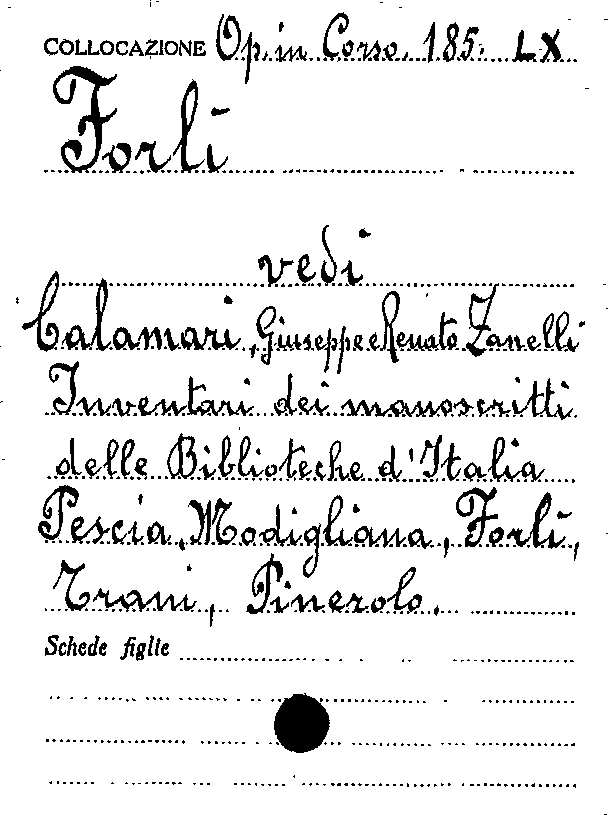 COLLOCAZIONE Op. in Corso. 185. LX
Forlì
vedi
Calamari, Giuseppe e Renato Zanelli
Inventari dei manoscritti
delle Biblioteche d'Italia
Pescia, Modigliana, Forlì,
Trani, Pinerolo.
Schede figlie